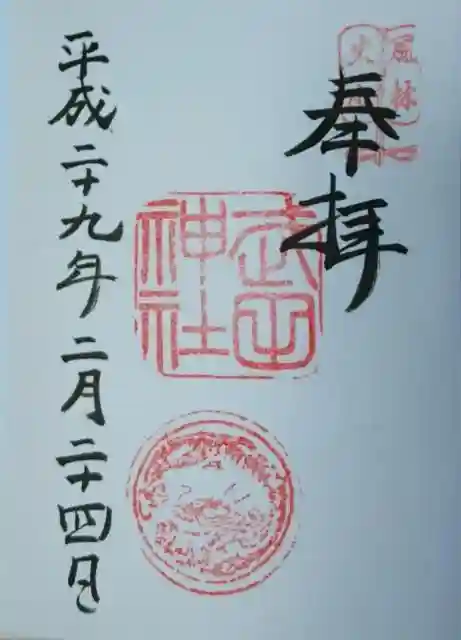 奉拝
風林
火
武田
神社
平成二十九年二月二十四日